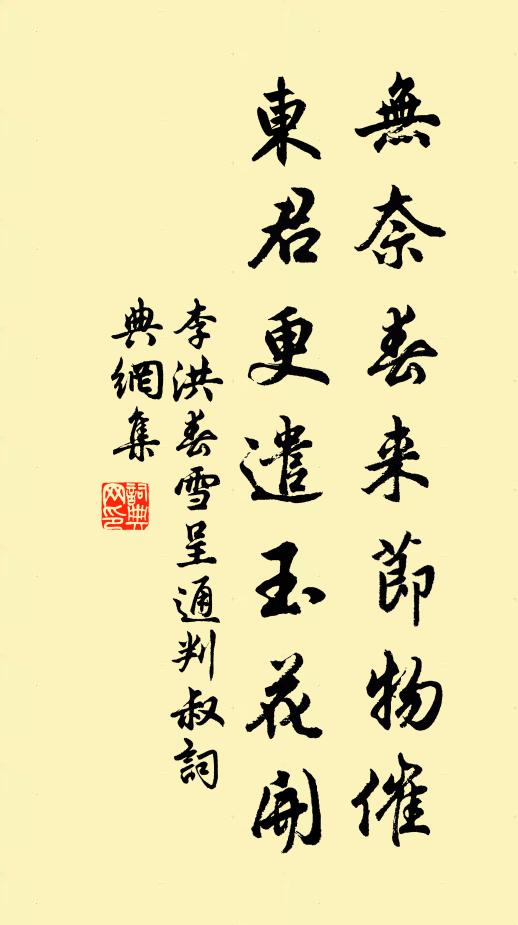 無奈春来節物催
東君更遣玉花開
李洪春雪呈通判叔詞
典網集
詞典
网印